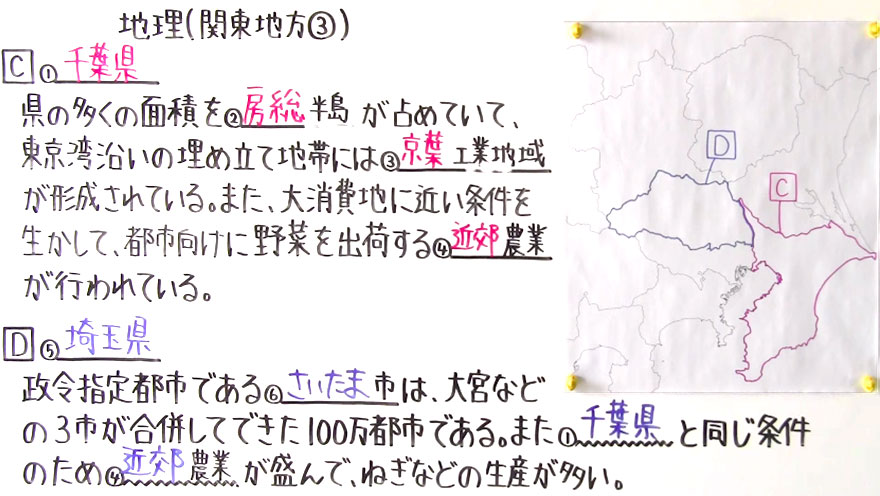 地理(関東地方③)
C ①千葉県
県の多くの面積を②房総半島が占めていて、
東京湾沿いの埋め立て地帯には③京葉工業地域
が形成されている。また、大消費地に近い条件を
生かして、都市向けに野菜を出荷する④近郊農業
が行われている。
D ⑤埼玉県
政令指定都市である⑥さいたま市は、大宮など
の3市が合併してできた100万都市である。また①千葉県と同じ条件
のため④近郊農業が盛んで、ねぎなどの生産が多い。
D
C